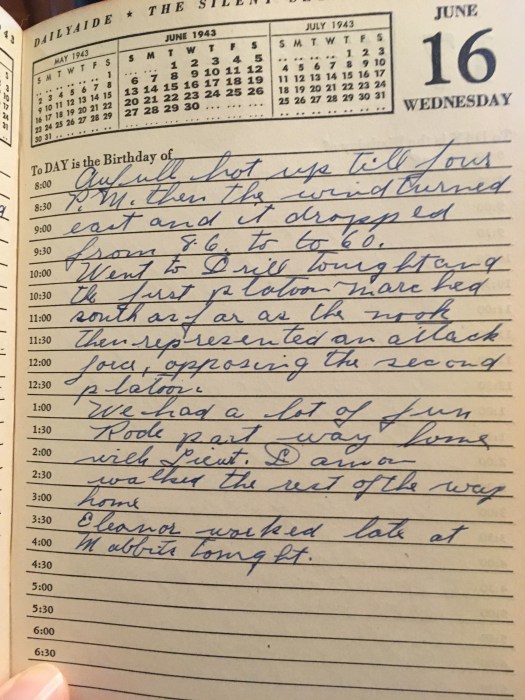 DAILYAIDE ★ THE SILENT SE
MAY 1943
S M T W T F S
1
2 3 4 5 6 7 8
9 10 11 12 13 14 15
16 17 18 19 20 21 22
23 24 25 26 27 28 29
30 31
JUNE 1943
S M T W T F S
1 2 3 4 5
6 7 8 9 10 11 12
13 14 15 16 17 18 19
20 21 22 23 24 25 26
27 28 29 30
JULY 1943
S M T W T F S
1 2 3
4 5 6 7 8 9 10
11 12 13 14 15 16 17
18 19 20 21 22 23 24
25 26 27 28 29 30 31
JUNE
16
WEDNESDAY
To DAY is the Birthday of
8:00 Awfull hot up till four
8:30 P.M. then the wind turned
9:00 east and it dropped
9:30 from 86. to to 60.
10:00 Went to Drill tonight and
10:30 the first platoon marched
11:00 south as far as the nook
11:30 then represented an attack
12:00 force, opposing the second
12:30 platoon.
1:00 We had a lot of fun
1:30 Rode part way home
2:00 with Lieut. Damon
2:30 walked the rest of the way
3:00 home
3:30 Eleanor worked late at
4:00 Mabbits tonight.
4:30
5:00
5:30
6:00
6:30